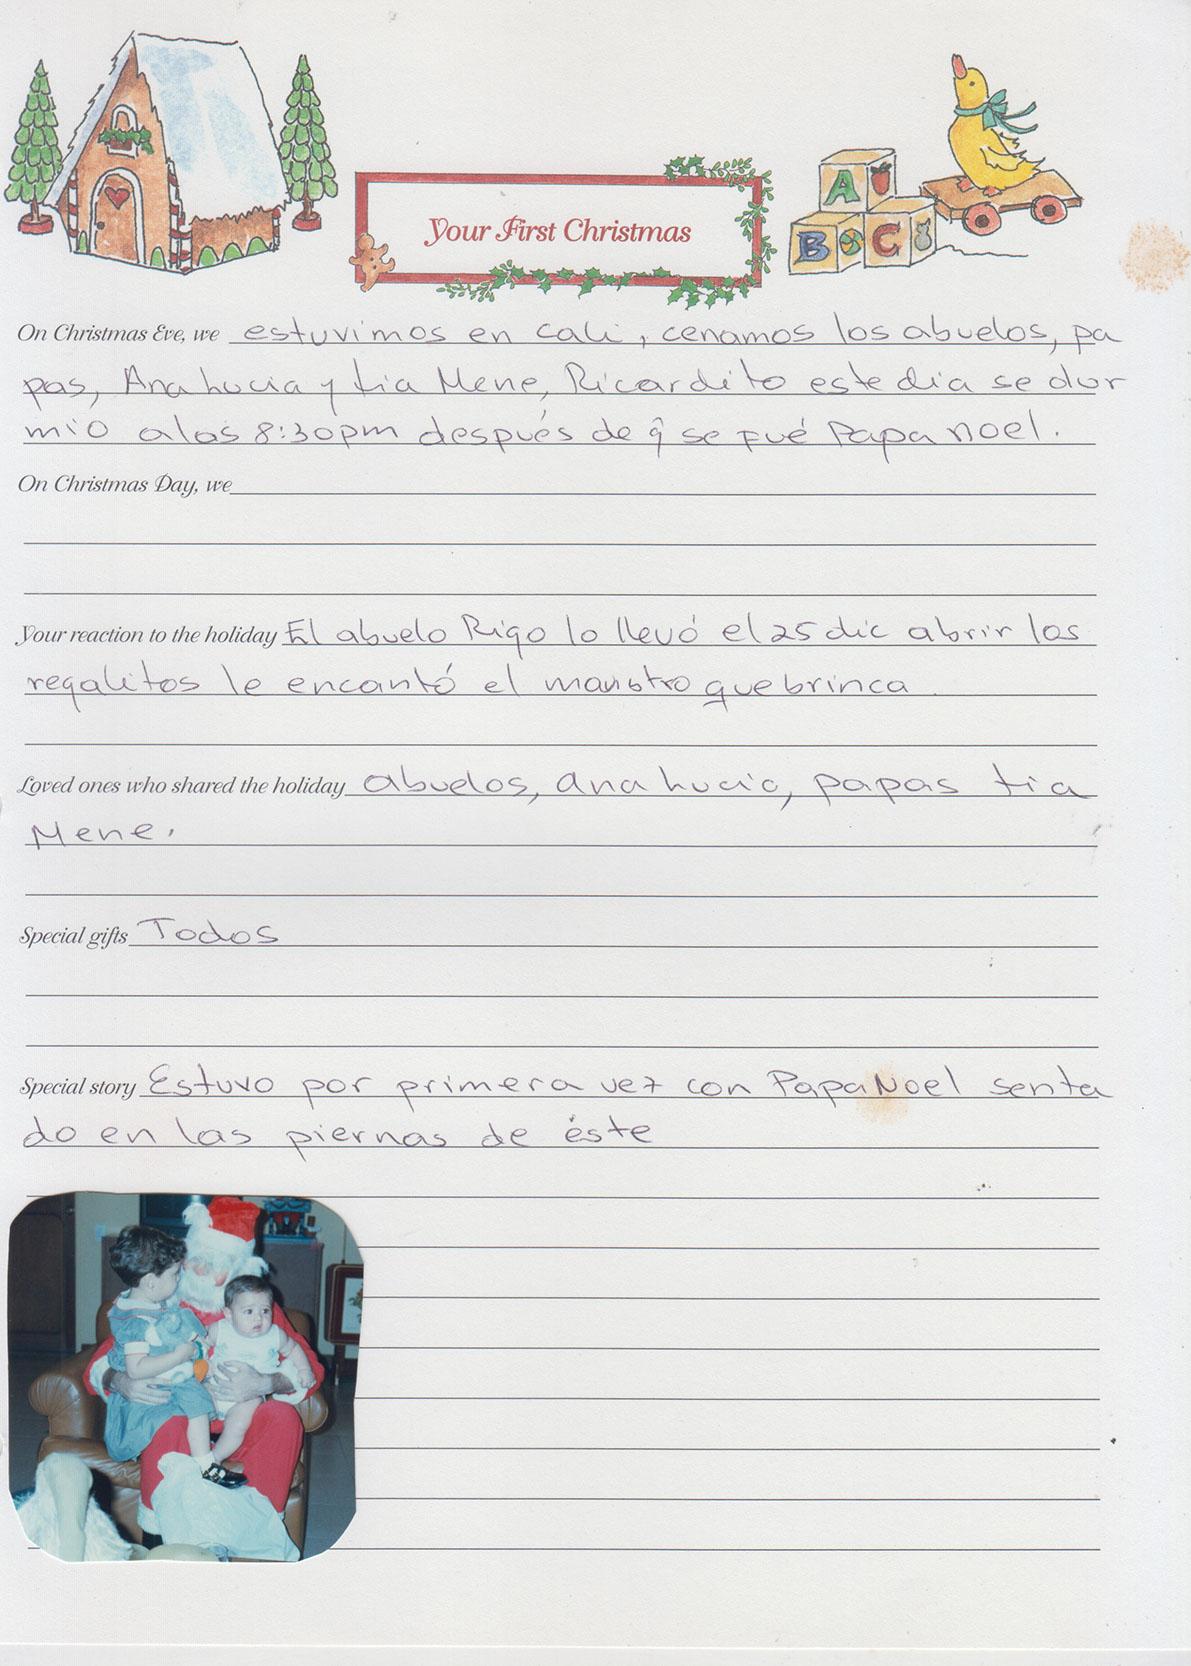 A
B C
Your First Christmas
On Christmas Eve, we estuvimos en cali, cenamos los abuelos, pa
pas, Ana Lucia y tia Mene, Ricardito este dia se dur
mio a las 8:30pm después de q̂ se fué Papa noel.
On Christmas Day, we
Your reaction to the holiday El abuelo Rigo lo llevó el 25 dic abrir los
regalitos le encantó el que brinca
Loved ones who shared the holiday abuelos, Ana Lucia, papas tia
Mene.
Special gifts Todos
Special story Estuvo por primera vez con Papa Noel senta
do en las piernas de éste